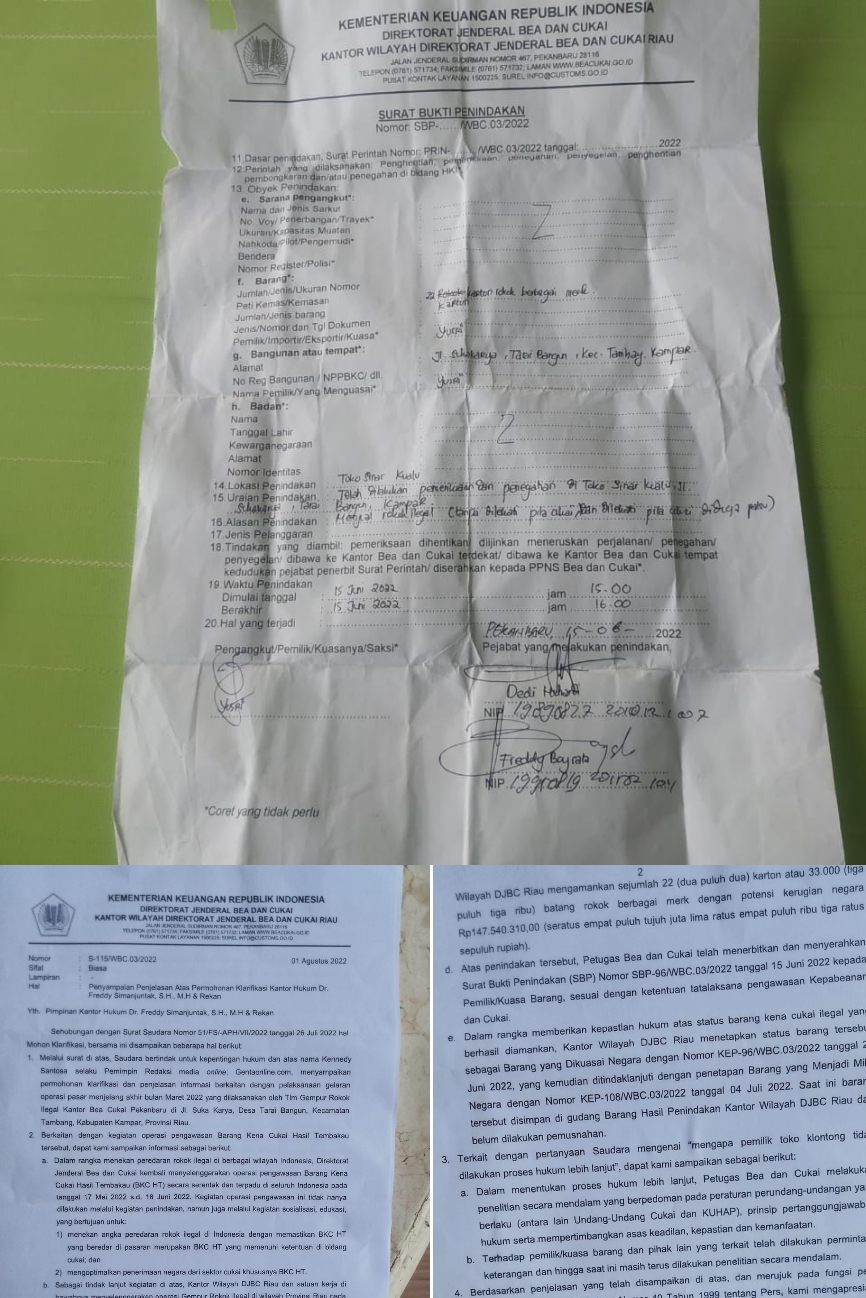 KEMENTERIAN KEUANGAN REPUBLIK INDONESIA
DIREKTORAT JENDERAL BEA DAN CUKAI
KANTOR WILAYAH DIREKTORAT JENDERAL BEA DAN CUKAI RIAU
JALAN JENDERAL SUDIRMAN NOMOR 467, PEKANBARU 28116
TELEPON (0761) 571734; FAKSIMILE (0761) 571732; LAMAN WWW.BEACUKAI.GO.ID
PUSAT KONTAK LAYANAN 1500225; SUREL INFO@CUSTOMS.GO.ID
SURAT BUKTI PENINDAKAN
Nomor: SBP-....../WBC.03/2022
11.Dasar penindakan, Surat Perintah Nomor: PRIN-....... /WBC.03/2022 tanggal: .................. 2022
12.Perintah yang dilaksanakan: Penghentian, pemeriksaan, penegahan, penyegelan, penghentian
pembongkaran dan/atau penegahan di bidang HKI*
13. Obyek Penindakan:
e. Sarana pengangkut*:
Nama dan Jenis Sarkut
No. Voy/ Penerbangan/Trayek*
Ukuran/Kapasitas Muatan
Nahkoda/Pilot/Pengemudi*
Bendera
Nomor Register/Polisi*
f. Barang*:
Jumlah/Jenis/Ukuran Nomor 22 karton rokok berbagai merk.
Peti Kemas/Kemasan karton
Jumlah/Jenis barang
Jenis/Nomor dan Tgl Dokumen
Pemilik/Importir/Eksportir/Kuasa* Yusri
g. Bangunan atau tempat*:
Alamat Jl. Sukakarya, Tarai Bangun, Kec. Tambang. Kampar.
No Reg Bangunan / NPPBKC/ dll.
Nama Pemilik/Yang Menguasai* Yusri
h. Badan*:
Nama
Tanggal Lahir
Kewarganegaraan
Alamat
Nomor Identitas
14.Lokasi Penindakan : Toko Sinar Kualu
15.Uraian Penindakan : Telah dilakukan pemeriksaan dan penegahan di Toko Sinar Kualu, Jl.
Sukakarya, Tarai Bangun, Kampar
16.Alasan Penindakan : Menjual rokok ilegal (tanpa dilekati pita cukai dan dilekati pita cukai diduga palsu)
17.Jenis Pelanggaran :
18.Tindakan yang diambil: pemeriksaan dihentikan/ diijinkan meneruskan perjalanan/ penegahan/
penyegelan/ dibawa ke Kantor Bea dan Cukai terdekat/ dibawa ke Kantor Bea dan Cukai tempat
kedudukan pejabat penerbit Surat Perintah/ diserahkan kepada PPNS Bea dan Cukai*.
19.Waktu Penindakan
Dimulai tanggal : 15 Juni 2022 jam 15.00
Berakhir : 15 Juni 2022 jam 16.00
20.Hal yang terjadi :
PEKANBARU, 15-06- 2022
Pengangkut/Pemilik/Kuasanya/Saksi* Pejabat yang melakukan penindakan,
Yusri
Dedi
NIP
Freddy
NIP.
*Coret yang tidak perlu
KEMENTERIAN KEUANGAN REPUBLIK INDONESIA
DIREKTORAT JENDERAL BEA DAN CUKAI
KANTOR WILAYAH DIREKTORAT JENDERAL BEA DAN CUKAI RIAU
JALAN JENDERAL SUDIRMAN NOMOR 467, PEKANBARU 28116
TELEPON (0761) 571734; FAKSIMILE (0761) 571732; LAMAN WWW.BEACUKAI.GO.ID
PUSAT KONTAK LAYANAN 1500225; SUREL INFO@CUSTOMS.GO.ID
Nomor : S-115/WBC.03/2022 01 Agustus 2022
Sifat : Biasa
Lampiran : -
Hal : Penyampaian Penjelasan Atas Permohonan Klarifikasi Kantor Hukum Dr.
Freddy Simanjuntak, S.H., M.H & Rekan
Yth. Pimpinan Kantor Hukum Dr. Freddy Simanjuntak, S.H., M.H & Rekan
Sehubungan dengan Surat Saudara Nomor 51/FS/-APH/VII/2022 tanggal 26 Juli 2022 hal
Mohon Klarifikasi, bersama ini disampaikan beberapa hal berikut:
1. Melalui surat di atas, Saudara bertindak untuk kepentingan hukum dan atas nama Kennedy
Santosa selaku Pemimpin Redaksi media online: Gentaonline.com, menyampaikan
permohonan klarifikasi dan penjelasan informasi berkaitan dengan pelaksanaan gelaran
operasi pasar menjelang akhir bulan Maret 2022 yang dilaksanakan oleh Tim Gempur Rokok
Ilegal Kantor Bea Cukai Pekanbaru di Jl. Suka Karya, Desa Tarai Bangun, Kecamatan
Tambang, Kabupaten Kampar, Provinsi Riau.
2. Berkaitan dengan kegiatan operasi pengawasan Barang Kena Cukai Hasil Tembakau
tersebut, dapat kami sampaikan informasi sebagai berikut:
a. Dalam rangka menekan peredaran rokok ilegal di berbagai wilayah Indonesia, Direktorat
Jenderal Bea dan Cukai kembali menyelenggarakan operasi pengawasan Barang Kena
Cukai Hasil Tembakau (BKC HT) secara serentak dan terpadu di seluruh Indonesia pada
tanggal 17 Mei 2022 s.d. 18 Juni 2022. Kegiatan operasi pengawasan ini tidak hanya
dilakukan melalui kegiatan penindakan, namun juga melalui kegiatan sosialisasi, edukasi,
yang bertujuan untuk:
1) menekan angka peredaran rokok ilegal di Indonesia dengan memastikan BKC HT
yang beredar di pasaran merupakan BKC HT yang memenuhi ketentuan di bidang
cukai; dan
2) mengoptimalkan penerimaan negara dari sektor cukai khususnya BKC HT.
b. Sebagai tindak lanjut kegiatan di atas, Kantor Wilayah DJBC Riau dan satuan kerja di
bawahnya menyelenggarakan operasi Gempur Rokok Ilegal di wilayah Provinsi Riau pada
2
Wilayah DJBC Riau mengamankan sejumlah 22 (dua puluh dua) karton atau 33.000 (tiga
puluh tiga ribu) batang rokok berbagai merk dengan potensi kerugian negara
Rp147.540.310,00 (seratus empat puluh tujuh juta lima ratus empat puluh ribu tiga ratus
sepuluh rupiah).
d. Atas penindakan tersebut, Petugas Bea dan Cukai telah menerbitkan dan menyerahkan
Surat Bukti Penindakan (SBP) Nomor SBP-96/WBC.03/2022 tanggal 15 Juni 2022 kepada
Pemilik/Kuasa Barang, sesuai dengan ketentuan tatalaksana pengawasan Kepabeanan
dan Cukai.
e. Dalam rangka memberikan kepastian hukum atas status barang kena cukai ilegal yang
berhasil diamankan, Kantor Wilayah DJBC Riau menetapkan status barang tersebut
sebagai Barang yang Dikuasai Negara dengan Nomor KEP-96/WBC.03/2022 tanggal 2
Juni 2022, yang kemudian ditindaklanjuti dengan penetapan Barang yang Menjadi Mili
Negara dengan Nomor KEP-108/WBC.03/2022 tanggal 04 Juli 2022. Saat ini baran
tersebut disimpan di gudang Barang Hasil Penindakan Kantor Wilayah DJBC Riau da
belum dilakukan pemusnahan.
3. Terkait dengan pertanyaan Saudara mengenai "mengapa pemilik toko klontong tida
dilakukan proses hukum lebih lanjut", dapat kami sampaikan sebagai berikut:
a. Dalam menentukan proses hukum lebih lanjut, Petugas Bea dan Cukai melakuka
penelitian secara mendalam yang berpedoman pada peraturan perundang-undangan ya
berlaku (antara lain Undang-Undang Cukai dan KUHAP), prinsip pertanggungjawab
hukum serta mempertimbangkan asas keadilan, kepastian dan kemanfaatan.
b. Terhadap pemilik/kuasa barang dan pihak lain yang terkait telah dilakukan perminta
keterangan dan hingga saat ini masih terus dilakukan penelitian secara mendalam.
4. Berdasarkan penjelasan yang telah disampaikan di atas, dan merujuk pada fungsi pe
40 Tahun 1999 tentang Pers, kami mengapresi